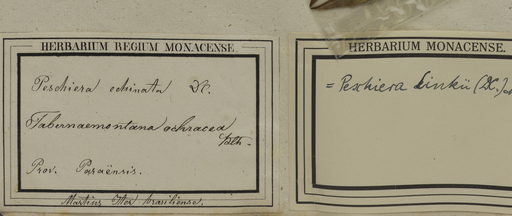 HERBARIUM REGIUM MONACENSE.
Peschiera echinata DC.
Tabernaemontana ochracea
Blth.
Prov. Paraënsis.
Martius Iter brasiliense.
HERBARIUM MONACENSE.
= Peschiera Linkii (DC.)